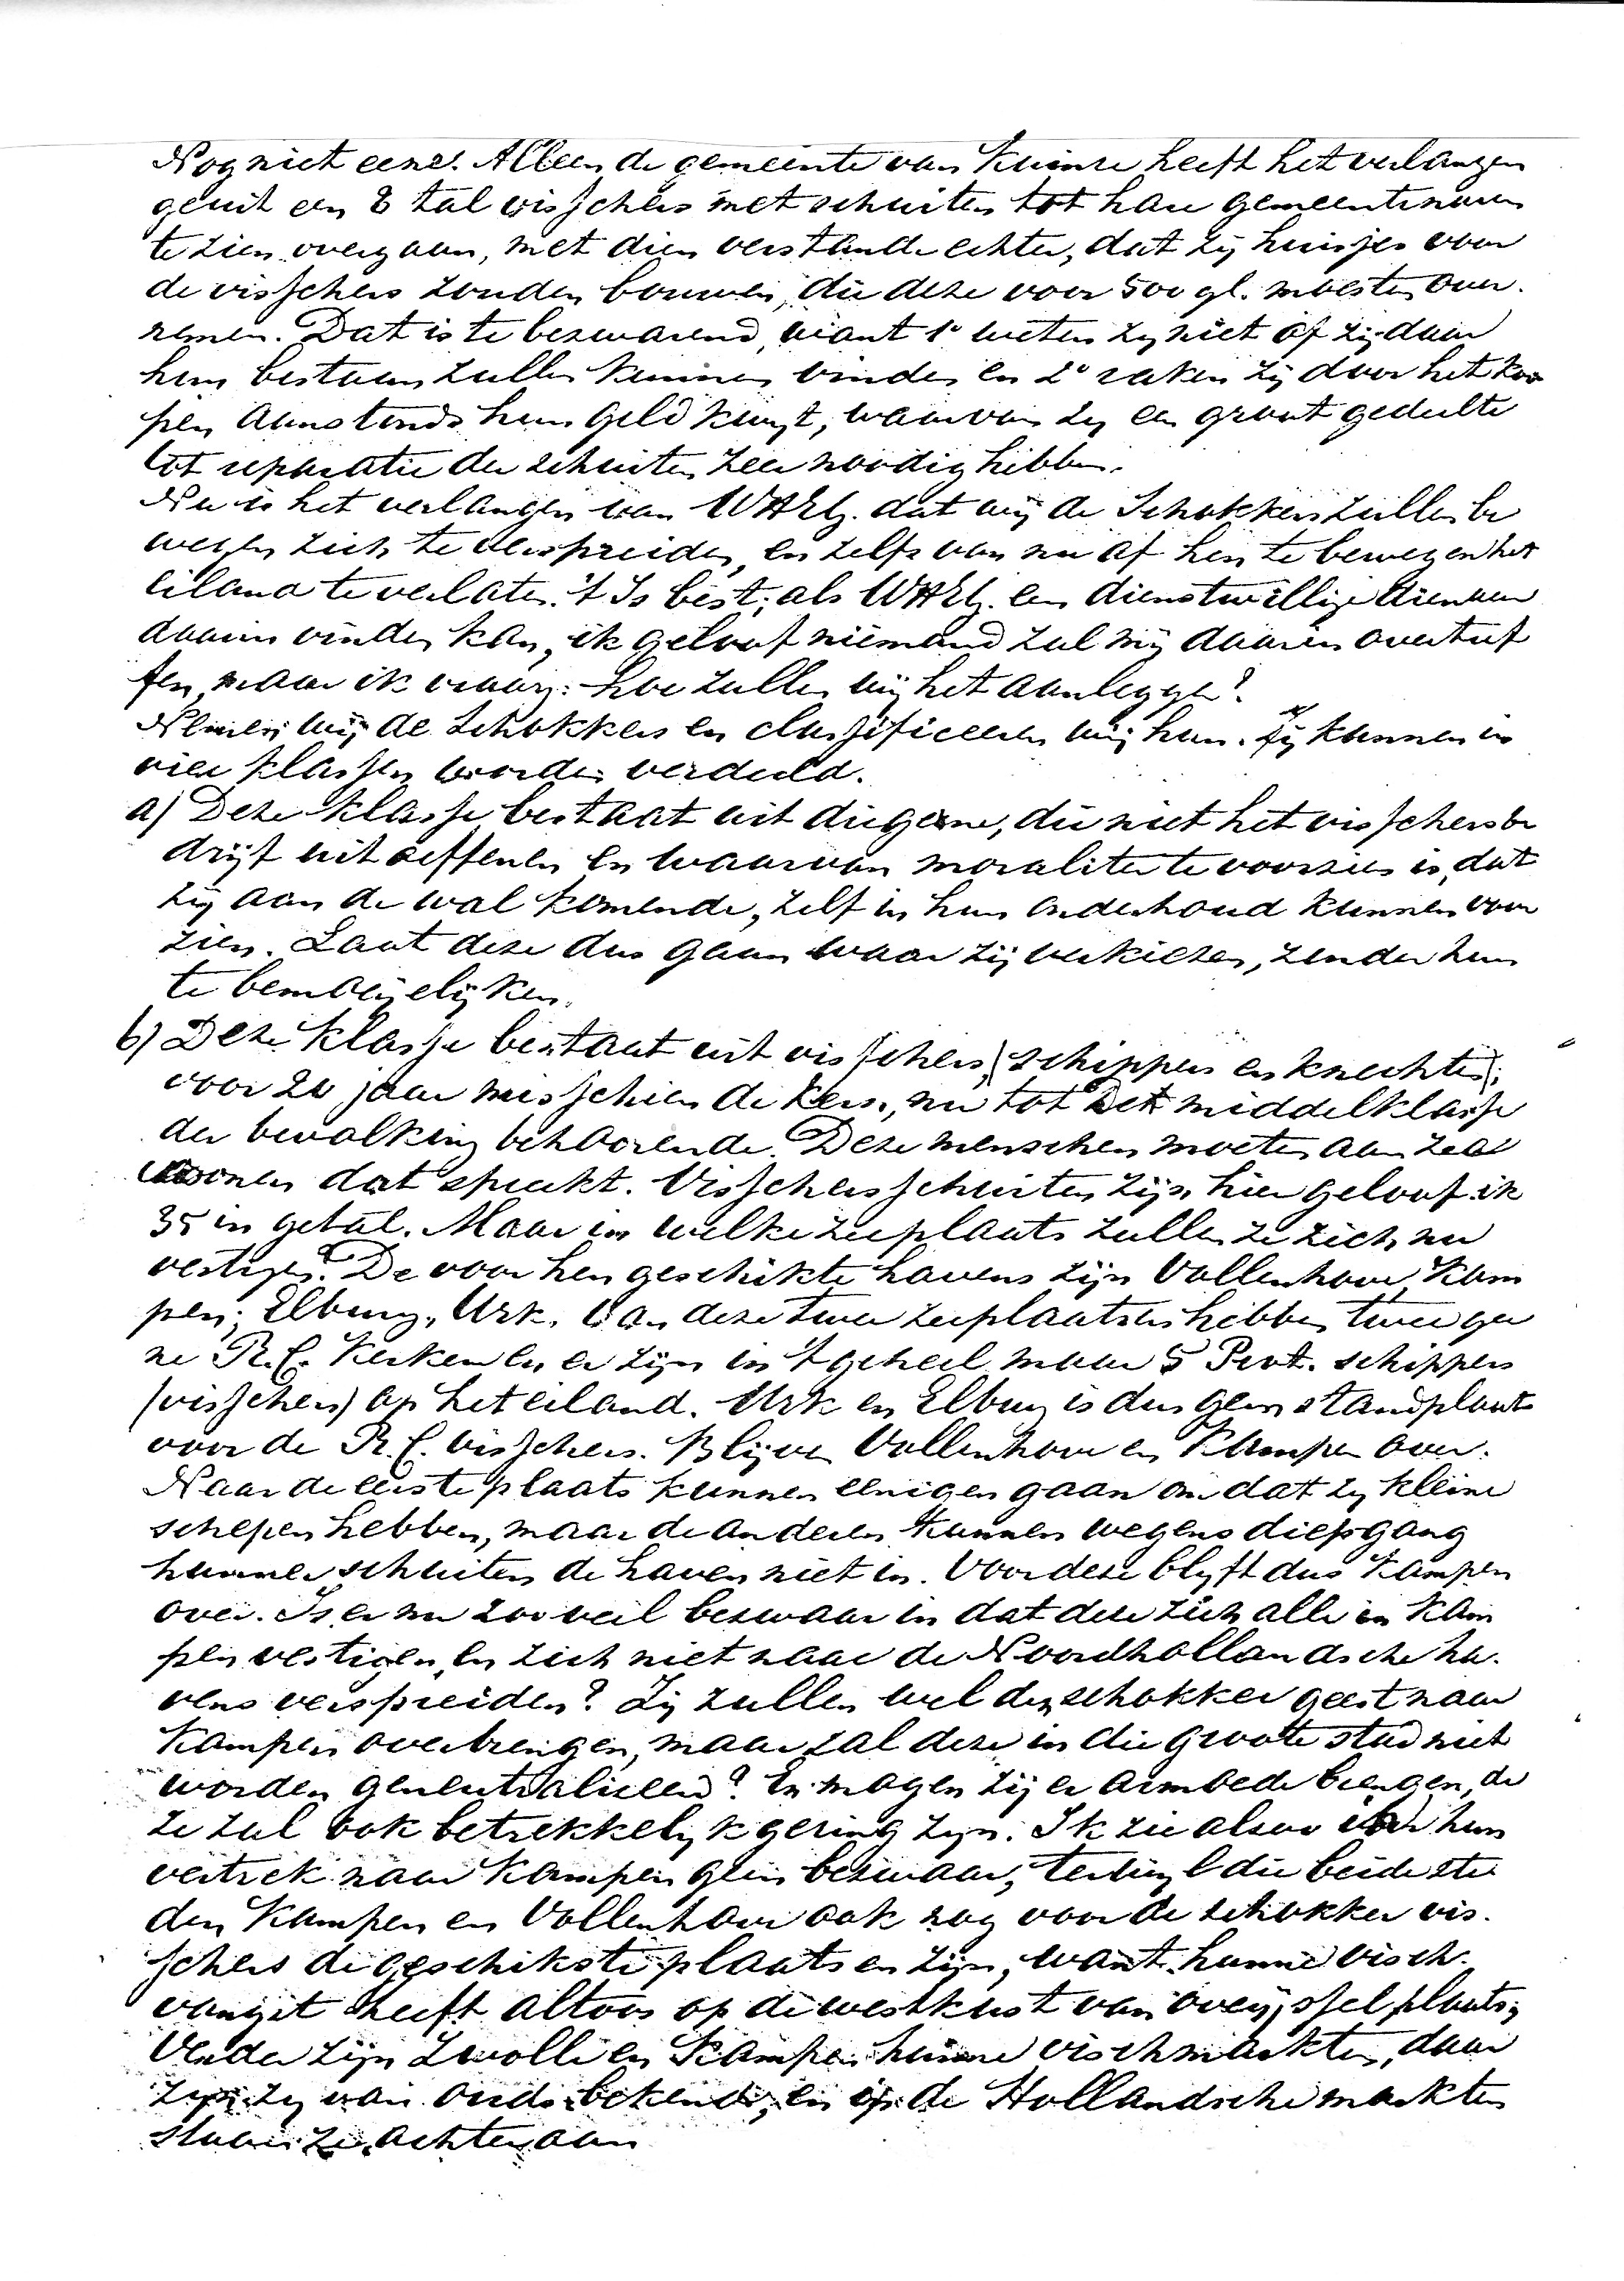 Nog niet eene! Alleen de gemeente van Kuinre heeft het verlangen
geuit een 8 tal visschers met schuiten tot hare gemeentenaren
te zien overgaan, met dien verstande echter, dat zij huisjes voor
de visschers zouden bouwen, die deze voor 500 gl. moesten over.
nemen. Dat is te bezwarend, want 1° weten zij niet of zij daar
hun bestaan zullen kunnen vinden en 2° raken zij door het koo
pen aanstonds hun geld kwijt, waarvan zij een groot gedeelte
tot reparatie der schuiten zeer noodig hebben.
Nu is het verlangen van WHEG. dat wij de Schokkers zullen be
wegen zich te verspreiden, en zelfs van nu af hen te bewegen het
eiland te verlaten. 't Is best, als WHEG. een dienstwillige dienaar
daarin vinden kan, ik geloof niemand zal mij daarin overtref
fen, maar ik vraag: hoe zullen wij het aanleggen?
Nemen wij de Schokkers en classificeeren wij hun. Zij kunnen in
vier klassen worden verdeeld.
a) Deze klasse bestaat uit diegene, die niet het visschersbe
drijf uitoeffenen en waarvan moraliter te voorzien is, dat
zij aan de wal komende, zelf in hun onderhoud kunnen voor
zien. Laat deze dus gaan waar zij verkiezen, zonder hun
te bemoeijelijken.
b) Deze klasse bestaat uit visschers, (schippers en knechten);
voor 20 jaar misschien de kern, nu tot de middelklasse
der bevolking behoorende. Deze menschen moeten aan zee
wonen dat spreekt. Visschersschuiten zijn hier geloof ik
35 in getal. Maar in welke zeeplaats zullen ze zich nu
vestigen? De voor hen geschikte havens zijn Vollenhove, Kam
pen, Elburg, Urk. Van deze twee zeeplaatsen hebben twee gee
ne R.C. Kerken en er zijn in 't geheel maar 5 Prot. schippers
(visschers) op het eiland. Urk en Elburg is dus geen standplaats
voor de R.C. visschers. Blijven Vollenhove en Kampen over.
Naar de eerste plaats kunnen eenigen gaan omdat zij kleine
schepen hebben, maar de anderen kunnen wegens diepgang
hunner schuiten de haven niet in. Voor deze blijft dus Kampen
over. Is er nu zoo veel bezwaar in dat deze zich alle in Kam
pen vestigen, en zich niet naar de Noordhollandsche ha.
vens verspreiden? Zij zullen wel den schokker geest naar
Kampen overbrengen, maar zal deze in die groote stad niet
worden geneutraliseerd? En mogen zij er armoede brengen, de
ze zal ook betrekkelijk gering zijn. Ik zie alsoo in hun
vertrek naar Kampen geen bezwaar, terwijl die beide ste
den Kampen en Vollenhove ook nog voor de schokker vis.
schers de geschikste plaatsen zijn, want hunne visch.
vangst heeft altoos op de westkust van Overijssel plaats;
Verder zijn Zwolle en Kampen hunne vischmarkten, daar
zijn zij van ouds bekend, en op de Hollandsche markten
staan ze achteraan